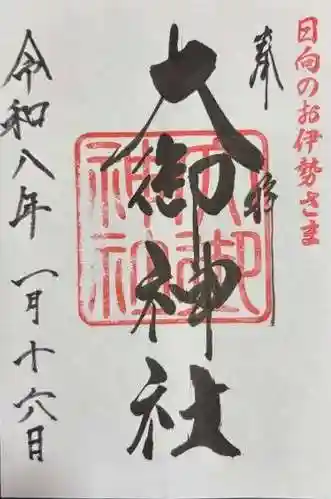 日向のお伊勢さま
奉拝
大御神社
大御神社
令和八年 一月十六日